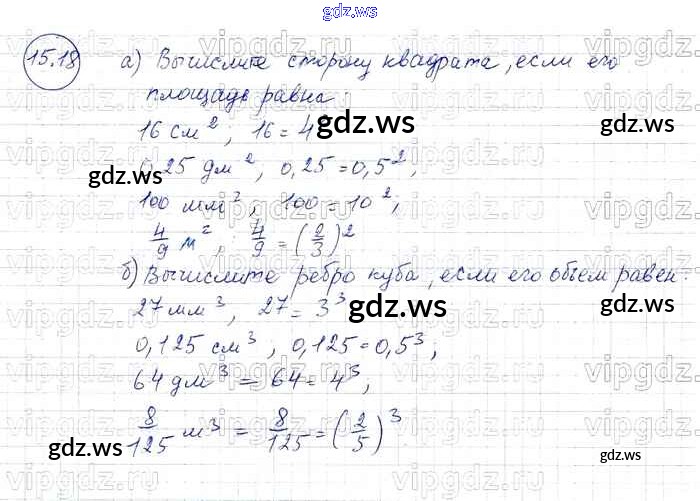 gdz.ws
15.18 а) Вычислите сторону квадрата, если его
площадь равна:
16 см², 16 = 4
gdz.ws
0,25 дм², 0,25 = 0,5²,
gdz.ws
100 мм², 100 = 10²;
4/9 м², 4/9 = (2/3)²
б) Вычислите ребро куба, если его объем равен:
27 мм³, 27 = 3³
gdz.ws
0,125 см³, 0,125 = 0,5³;
64 дм³ = 64 = 4³,
8/125 м³ = 8/125 = (2/5)³
gdz.ws
gdz.ws